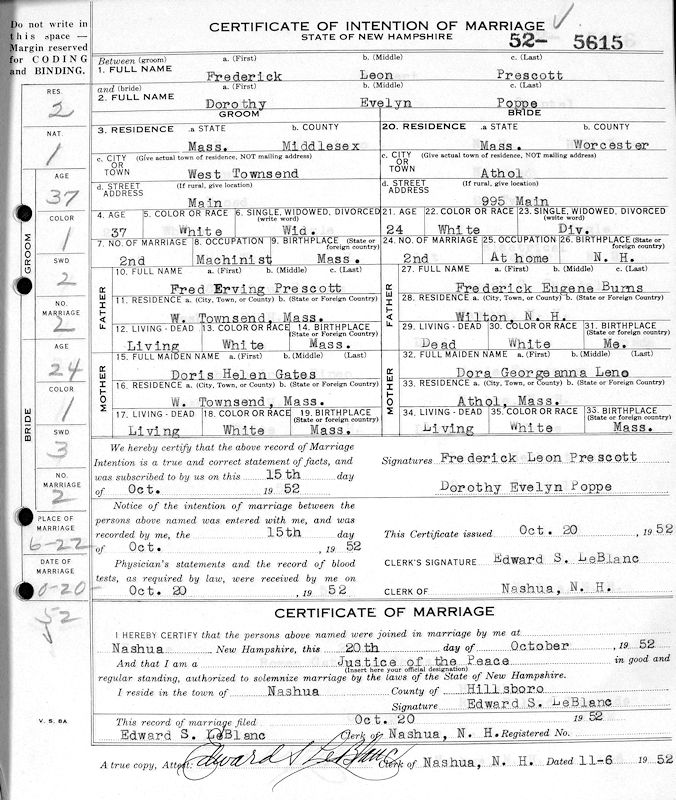 Do not write in
this space —
Margin reserved
for CODING
and BINDING.
CERTIFICATE OF INTENTION OF MARRIAGE
STATE OF NEW HAMPSHIRE
52- 5615
Between (groom) a. (First) b. (Middle) c. (Last)
1. FULL NAME Frederick Leon Prescott
and (bride) a. (First) b. (Middle) c. (Last)
2. FULL NAME Dorothy Evelyn Poppe
GROOM BRIDE
3. RESIDENCE a. STATE b. COUNTY 20. RESIDENCE a. STATE b. COUNTY
Mass. Middlesex Mass. Worcester
c. CITY OR TOWN (Give actual town of residence, NOT mailing address) c. CITY OR TOWN (Give actual town of residence, NOT mailing address)
West Townsend Athol
d. STREET ADDRESS (If rural, give location) d. STREET ADDRESS (If rural, give location)
Main 995 Main
4. AGE 5. COLOR OR RACE 6. SINGLE, WIDOWED, DIVORCED (write word) 21. AGE 22. COLOR OR RACE 23. SINGLE, WIDOWED, DIVORCED (write word)
37 White Wid. 24 White Div.
7. NO. OF MARRIAGE 8. OCCUPATION 9. BIRTHPLACE (State or foreign country) 24. NO. OF MARRIAGE 25. OCCUPATION 26. BIRTHPLACE (State or foreign country)
2nd Machinist Mass. 2nd At home N. H.
FATHER
10. FULL NAME a. (First) b. (Middle) c. (Last) 27. FULL NAME a. (First) b. (Middle) c. (Last)
Fred Erving Prescott Frederick Eugene Burns
11. RESIDENCE a. (City, Town, or County) b. (State or Foreign Country) 28. RESIDENCE a. (City, Town, or County) b. (State or Foreign Country)
W. Townsend, Mass. Wilton, N. H.
12. LIVING - DEAD 13. COLOR OR RACE 14. BIRTHPLACE (State or Foreign Country) 29. LIVING - DEAD 30. COLOR OR RACE 31. BIRTHPLACE (State or Foreign Country)
Living White Mass. Dead White Me.
MOTHER
15. FULL MAIDEN NAME a. (First) b. (Middle) c. (Last) 32. FULL MAIDEN NAME a. (First) b. (Middle) c. (Last)
Doris Helen Gates Dora Georgeanna Leno
16. RESIDENCE a. (City, Town, or County) b. (State or Foreign Country) 33. RESIDENCE a. (City, Town, or County) b. (State or Foreign Country)
W. Townsend, Mass. Athol, Mass.
17. LIVING - DEAD 18. COLOR OR RACE 19. BIRTHPLACE (State or Foreign Country) 34. LIVING - DEAD 35. COLOR OR RACE 33. BIRTHPLACE (State or Foreign Country)
Living White Mass. Living White Mass.
We hereby certify that the above record of Marriage
Intention is a true and correct statement of facts, and
was subscribed to by us on this 15th day
of Oct. 19 52
Signatures Frederick Leon Prescott
Dorothy Evelyn Poppe
Notice of the intention of marriage between the
persons above named was entered with me, and was
recorded by me, the 15th day
of Oct. , 19 52
This Certificate issued Oct. 20 , 19 52
Physician's statements and the record of blood
tests, as required by law, were received by me on
Oct. 20 , 19 52
CLERK'S SIGNATURE Edward S. LeBlanc
CLERK OF Nashua, N. H.
CERTIFICATE OF MARRIAGE
I HEREBY CERTIFY that the persons above named were joined in marriage by me at
Nashua New Hampshire, this 20th day of October , 19 52
And that I am a Justice of the Peace in good and
(Insert here your official designation)
regular standing, authorized to solemnize marriage by the laws of the State of New Hampshire.
I reside in the town of Nashua County of Hillsboro
Signature Edward S. LeBlanc
This record of marriage filed Oct. 20 19 52
Edward S. LeBlanc Clerk of Nashua, N. H. Registered No.
A true copy, Attest: Edward S LeBlanc Clerk of Nashua, N. H. Dated 11-6 19 52
RES.
2
NAT.
1
GROOM
AGE
37
COLOR
1
SWD
2
NO. MARRIAGE
2
BRIDE
AGE
24
COLOR
1
SWD
3
NO. MARRIAGE
2
PLACE OF MARRIAGE
6-22
DATE OF MARRIAGE
0-20-
52
V. S. 8A